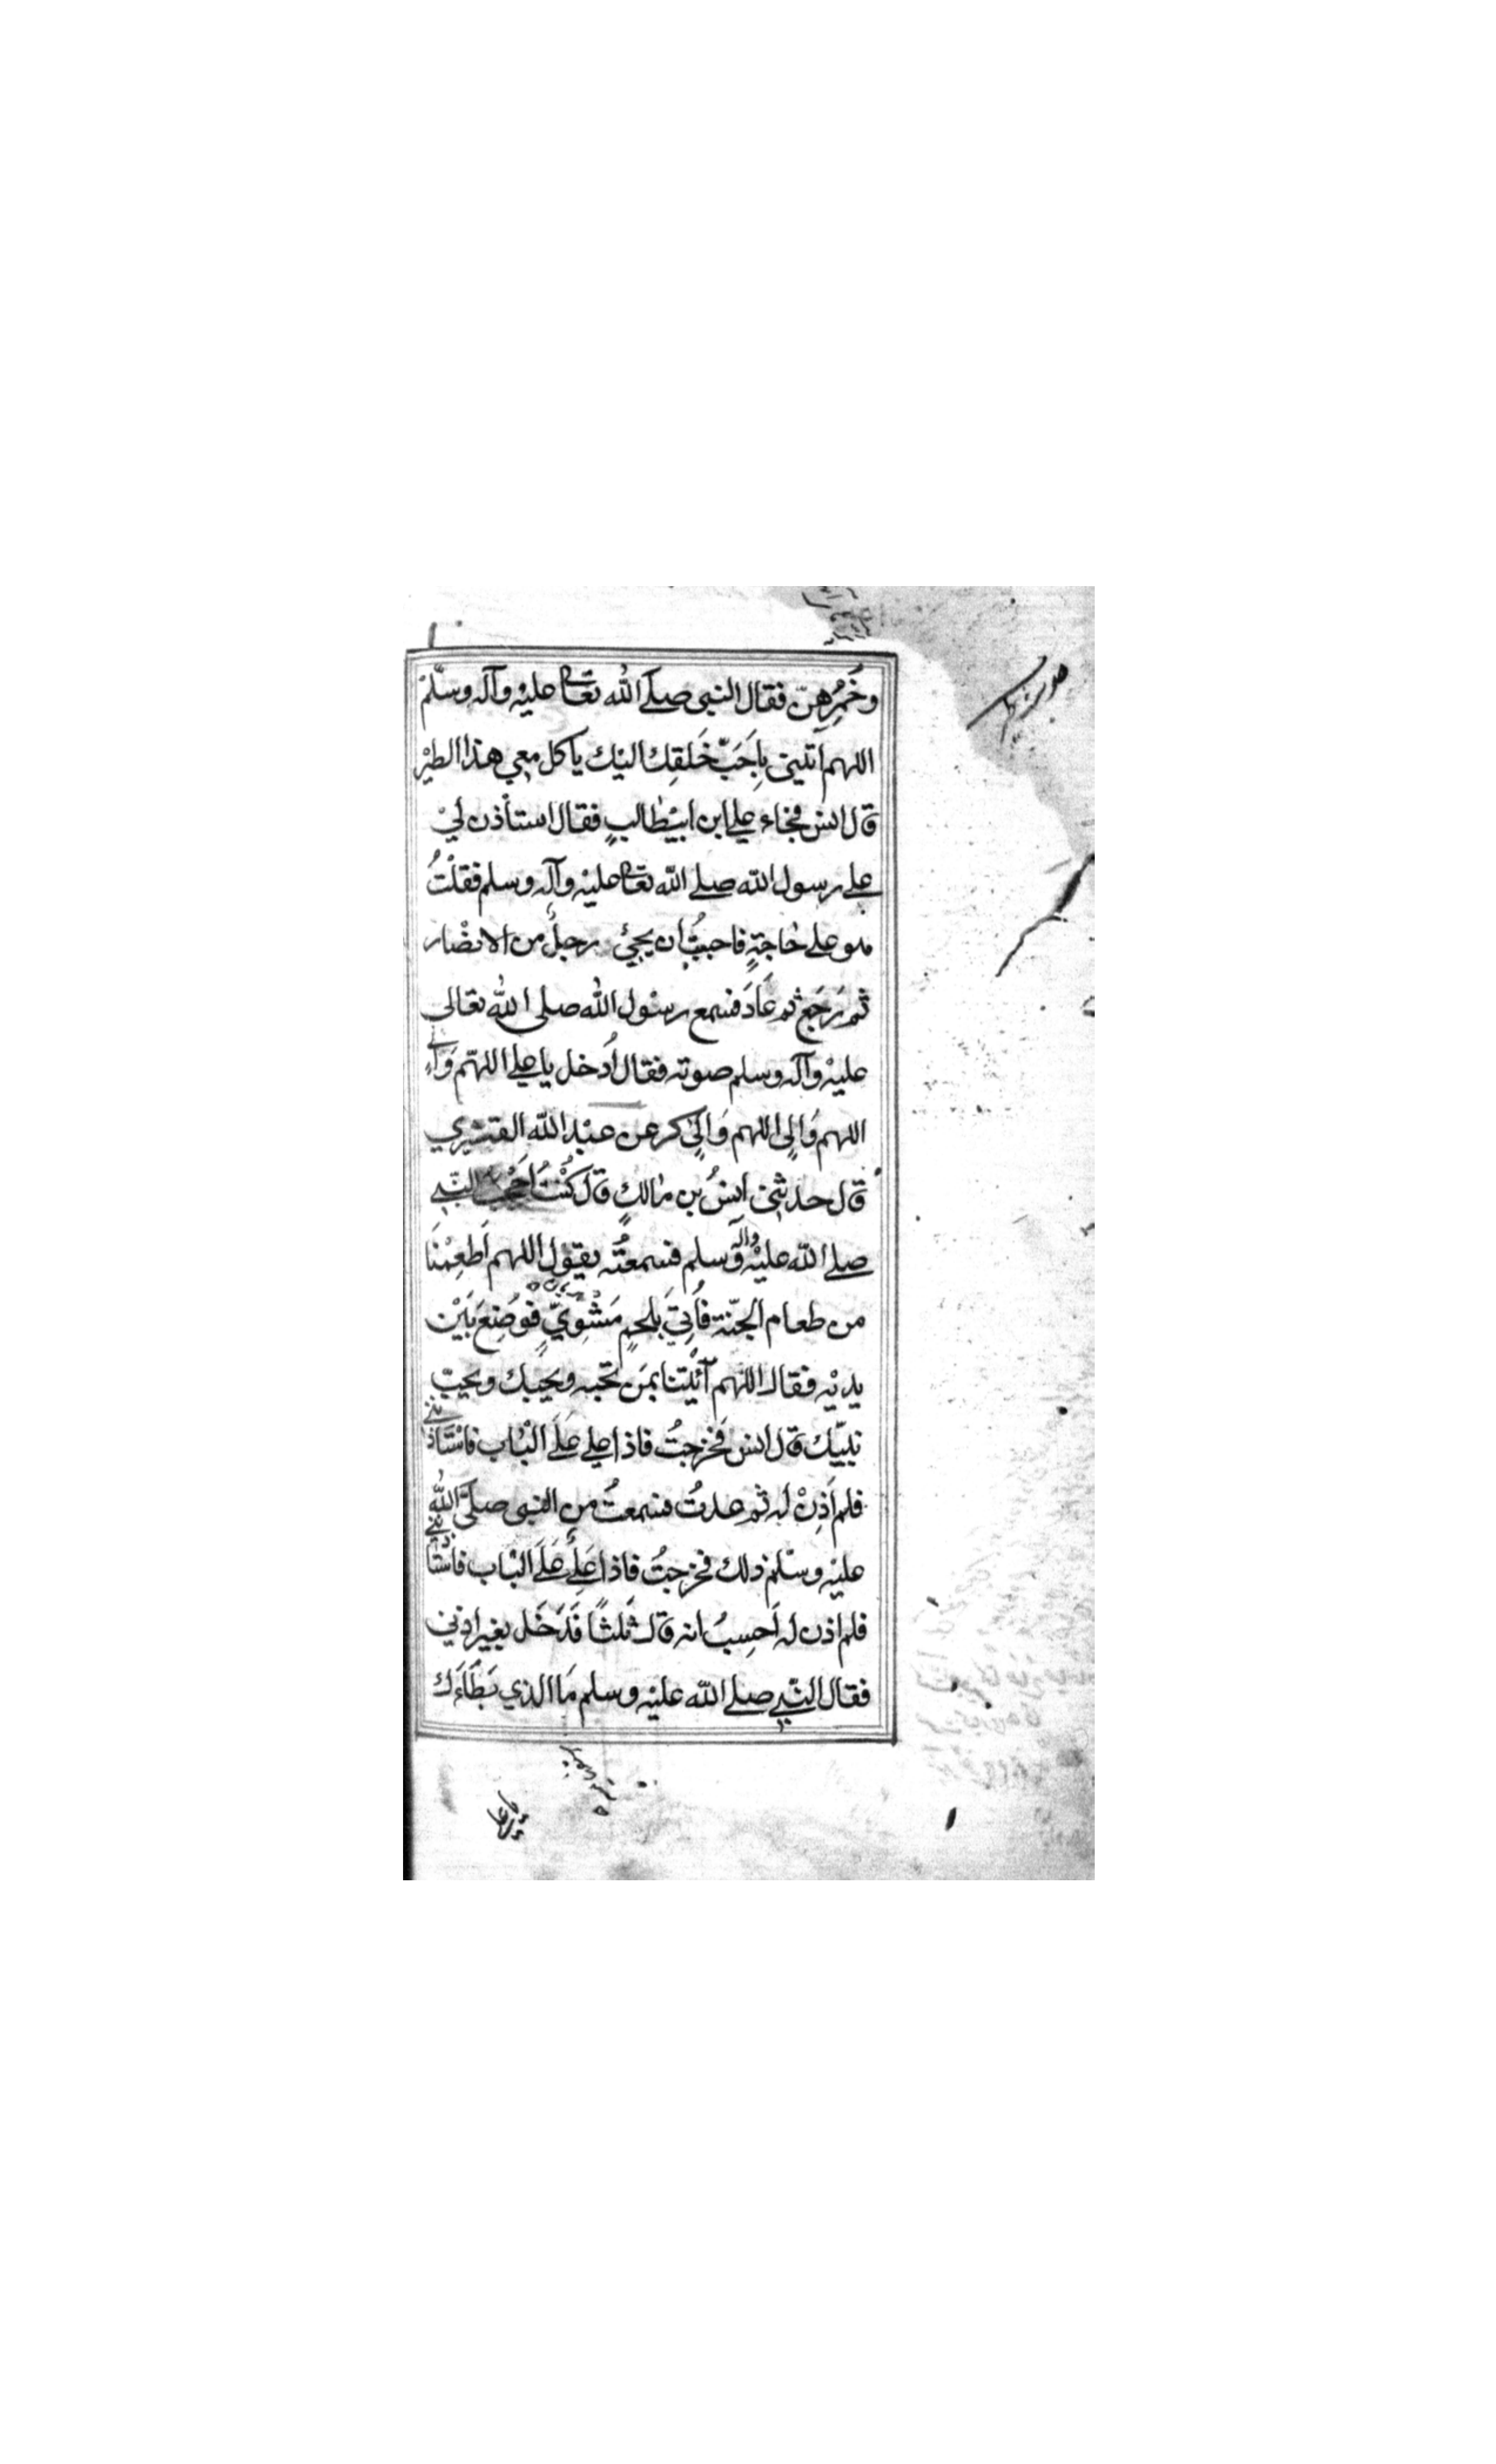 وخَمِّرهنّ فقال النبى صلے الله تعالى عليْه وآله وسلّم
اللهم أتنى بِاَحَبّ خَلقِك اليْك ياكل معِي هذا الطيْر
قال انس فجاء علي ابن ابيْطالبٍ فقال استأذن ليْ
علے رسول الله صلے الله تعالى عليْه وآله وسلم فقلْتُ
هو علے حَاجةٍ فاحببْتُ ان يجيْئ رجلٌ من الانصْار
ثم رَجَعَ ثم عَادَ فسمع رسوْل الله صلى الله تعالى
عليْه وآله وسلم صوته فقال أدخل يا علي اللهّم وَالِي
اللهم وَالِي اللهم وَالِي كر عن عبْد الله القشيْري
قال حدثنى انسُ بن مالكٍ قال كُنْتُ اَحْجب النّبي
صلے الله عليْه وآله وسلم فسمعتُه يقوْل اللهم اَطعِمْنَا
من طعام الجنّة فاُتِيَ بلحمٍ مَشْوِيٍّ فوُضِعَ بَيْن
يديْه فقال اللهم آئْتنا بمَن تحبه ويحِبك ويحبّ
نبيّك قال انس فخرجتُ فاذا علي عَلَے الْبَاب فاسْتَاذننے
فلم اَذِنْ له ثم عدتُ فسمعتُ من النبى صلّے الله
عليْه وسلّم ذلك فخرجتُ فاذا عَلِيٌ عَلَے الْبَاب فاسْتَاذننے
فلم اذن له اَحسِبُ انه قال ثَلثًا فدَخَل بغيْر اذني
فقال النّبي صلے الله عليْه وسلم مَا الذي بَطَّاءَك